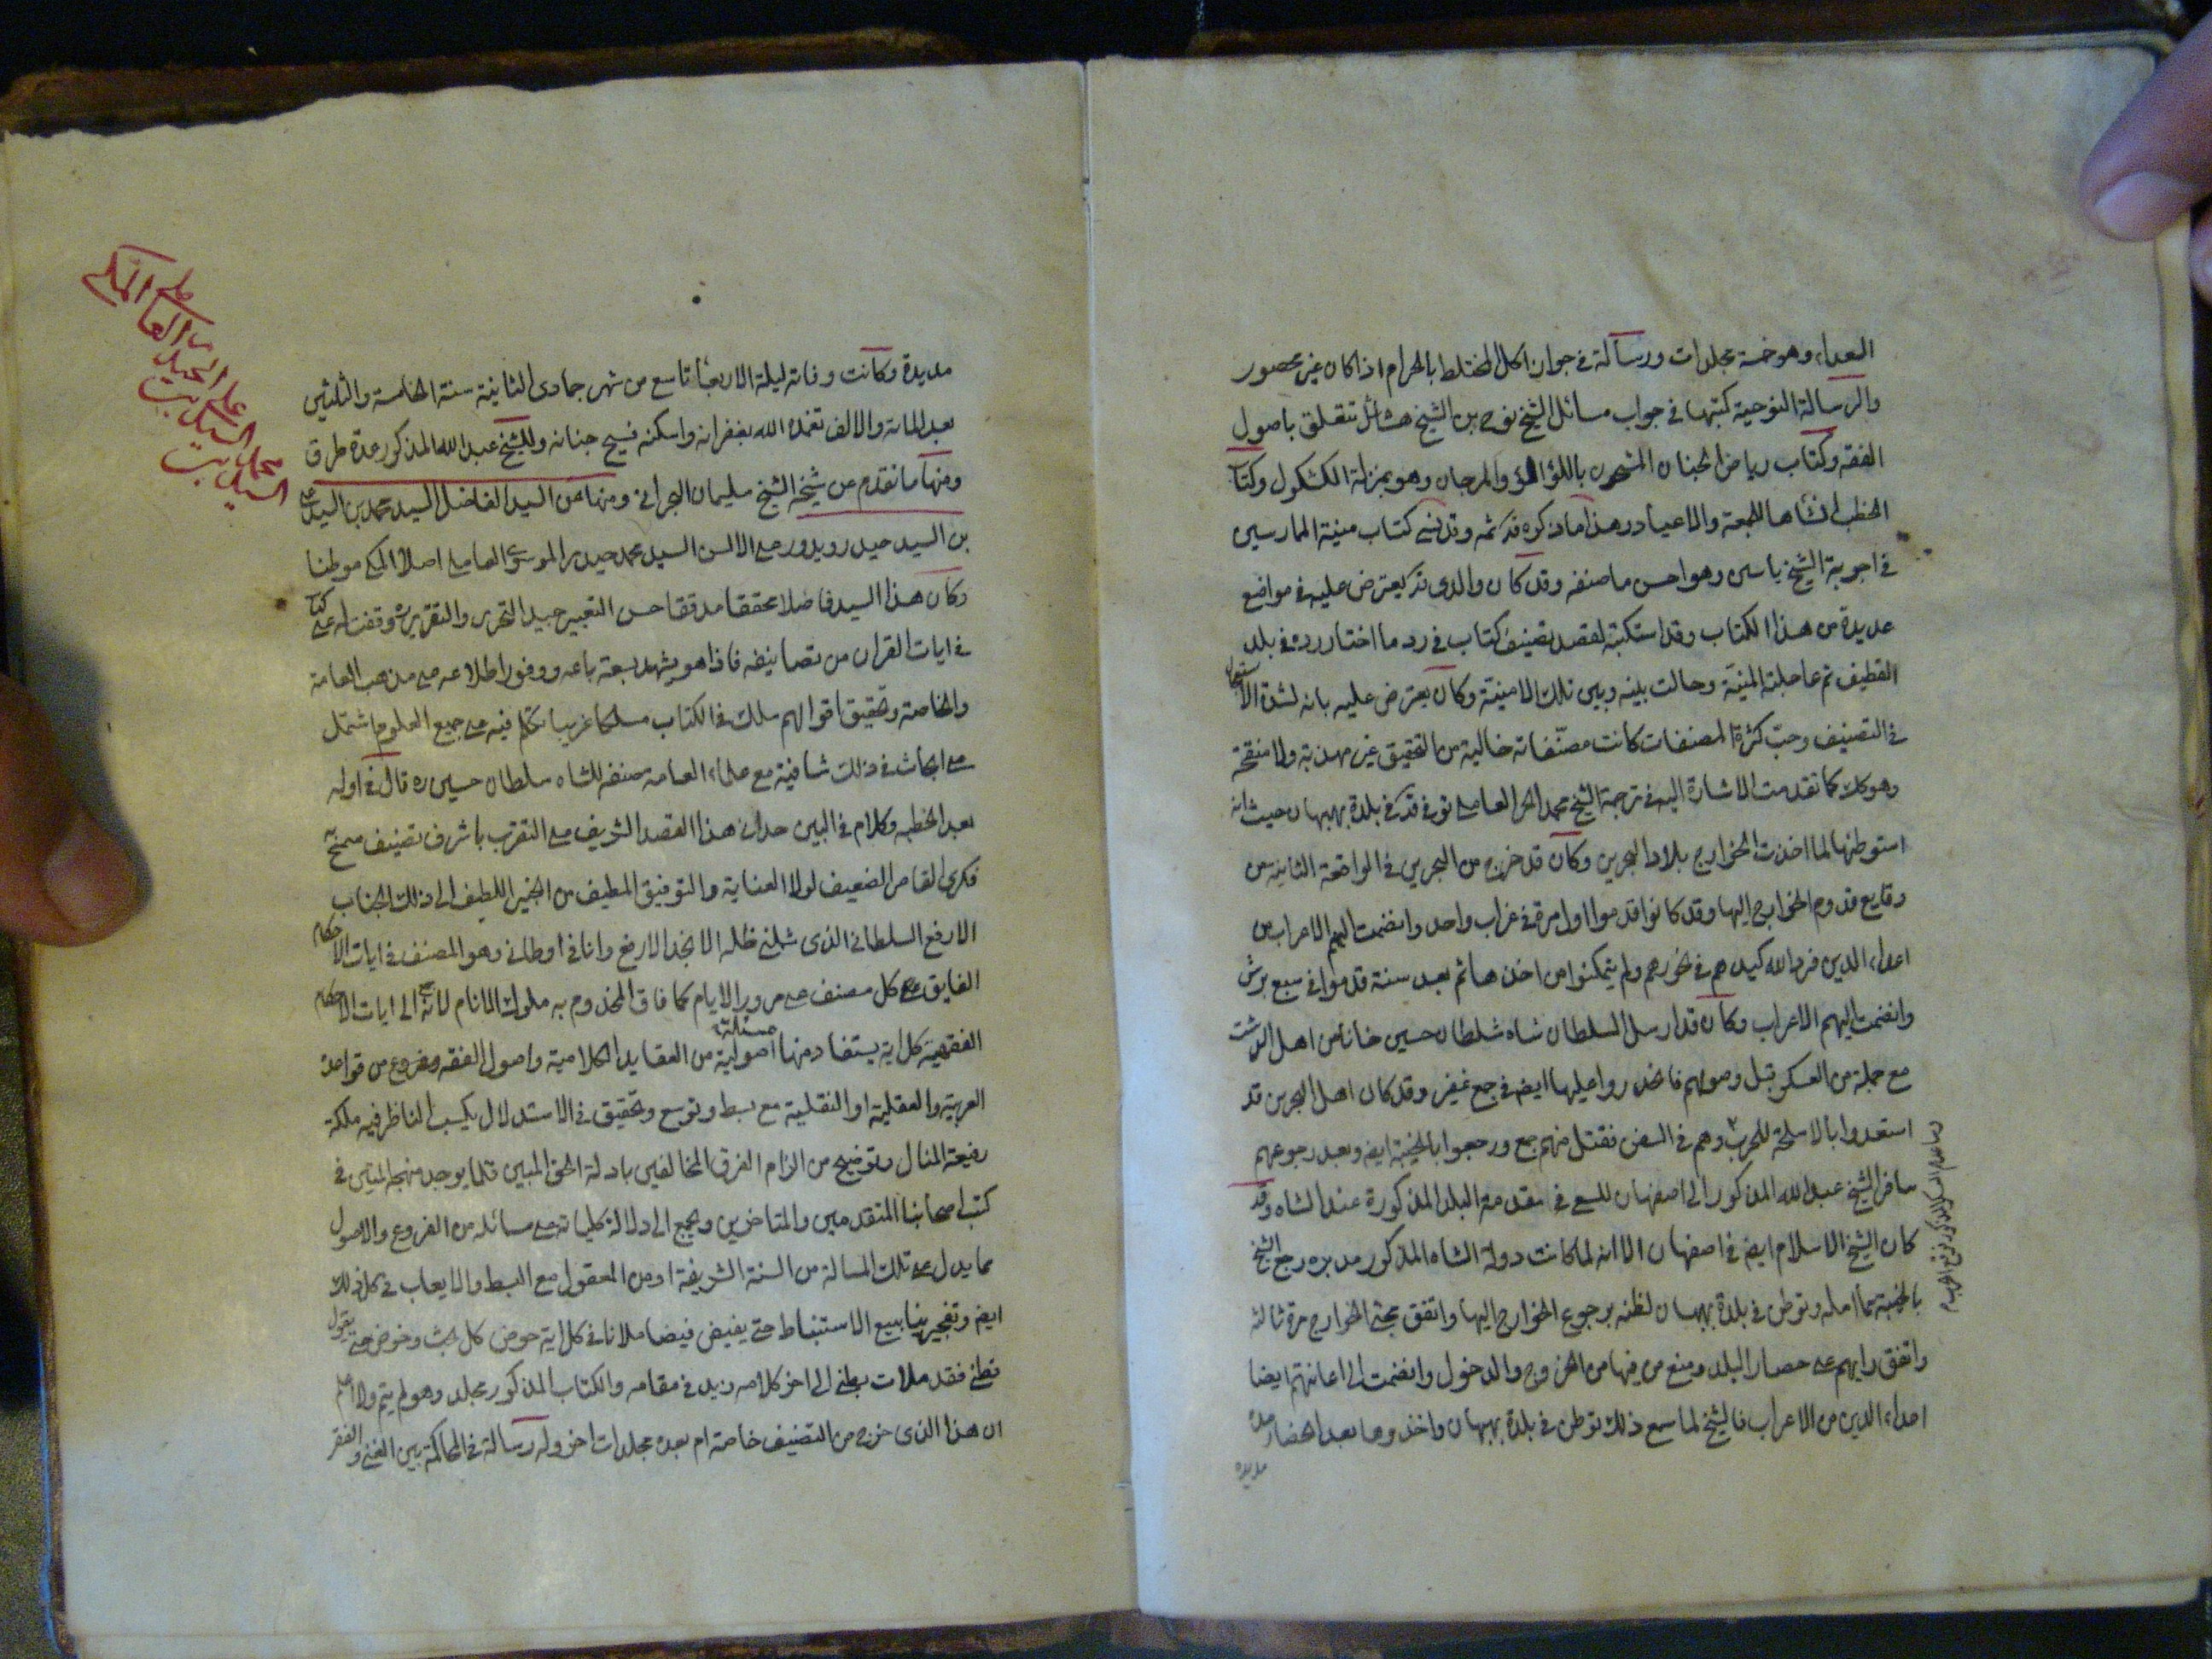 العداء وهو خمسة مجلدات ورسالة في جواز اكل المختلط بالحرام اذا كان غير محصور
والرسالة النوحية كتبها في جواب مسائل الشيخ نوح بن الشيخ هشل تتعلق باصول
الفقه وكتاب رياض الجنان المشحون باللؤلؤ والمرجان وهو بمنزلة الكشكول وكتاب
الخطب انشأها للجمعة والاعياد هذا ما ذكره قده ثمه وقد نسى كتاب منية الممارسين
في اجوبة الشيخ ياسين وهو احسن ما صنفه وقد كان والدى قده يعترض عليه في مواضع
عديدة من هذا الكتاب وقد استكتبه لقصد تصنيف كتاب في رد ما اختار رده في بلد
القطيف ثم عاجلته المنية وحالت بينه وبين تلك الامنية وكان يعترض عليه بانه لشدة الاستعجال
في التصنيف وحب كثرة المصنفات كانت مصنفاته خالية من التحقيق غير مهذبة ولا منقحة
وهو كك كما تقدمت الاشارة اليه في ترجمة الشيخ محمد الحر العاملي توفي قده في بلدة بهبهان حيث انه
استوطنها لما اخذت الخوارج بلاد البحرين وكان قد خرج من البحرين في الواقعة الثانية من
وقايع قدوم الخوارج اليها وقد كانوا قدموا اول مرة في غراب واحد وانضمت اليهم الاعراب من
اعداء الدين فرد الله كيدهم في نحورهم ولم يتمكنوا من اخذها ثم بعد سنة قدموا في سبع برش
وانضمت اليهم الاعراب وكان قد ارسل السلطان شاه سلطان حسين خانا من اهل الدشت
مع جملة من العسكر قبل وصولهم فاخدروا عليها ايض في جمع غفير وقد كان اهل البحرين قد
استعدوا بالاسلحة للحرب وهم في السفن فقتل منهم جمع ورجعوا بالخيبة ايض وبعد رجوعهم
سافر الشيخ عبد الله المذكور الى اصفهان للسعي في مقدمه البلد المذكورة عند الشاه وقد
كان الشيخ الاسلام ايض في اصفهان الا انه لما كانت دولة الشاه المذكور مدبره رجع الشيخ
بالخيبة مما امله وتوطن في بلدة بهبهان لظنه برجوع الخوارج اليها واتفق مجئ الخوارج مرة ثالثة
واتفق رايهم على حصار البلد ومنع من فيها من الخروج والدخول وانضمت الى اعانتهم ايضا
اعداء الدين من الاعراب فالشيخ لما سمع ذلك توطن في بلدة بهبهان واخذوها بعد الحصار مدة
مديدة
مديدة وكانت وفاته ليلة الاربعا تاسع من شهر جمادى الثانية سنة الخامسة والثلثين
بعد المائة والالف تغمده الله بغفرانه واسكنه فسيح جنانه وللشيخ عبد الله المذكور عدة طرق
ومنها ما تقدم عن شيخه الشيخ سليمان البحراني ومنها عن السيد الفاضل السيد محمد بن السيد على
بن السيد حيدر ويدور على الالسن السيد محمد حيدر الموسوى العاملى اصلا المكى موطنا
وكان هذا السيد فاضلا محققا مدققا حسن التعبير جيد التحرير والتقرير وقفت له على كتاب
في ايات القران من تصانيفه فاذا هو يشهد بسعة باعه ووفور اطلاعه على مذهب العامة
والخاصة وتحقيق اقوالهم سلك في الكتاب مسلكا غريبا تكلم فيه على جميع العلوم اشتمل
على ابحاث في ذلك شافية مع علماء العامة صنفه للشاه سلطان حسين ره قال في اوله
بعد الخطبه وكلام في البين حداني هذا القصد الشريف على التقرب باشرف تصنيف سمح به
فكرى القاصر الضعيف لولا العناية والتوفيق المطيف من الخبير اللطيف الى ذلك الجناب
الارفع السلطاني الذى شملنى ظله الانجد الارفع وانا في اوطاني وهو المصنف في ايات الاحكام
الفايق على كل مصنف على مرور الايام كما فاق المخدوم به ملوك الانام لانه الى ايات الاحكام
الفقهية كل اية يستفاد منها مسئلة اصولية من العقايد الكلامية واصول الفقه وفروع من قواعد
العربية والعقلية او النقلية مع بسط وتوسع وتحقيق في الاستدلال يكسب الناظر فيه ملكة
رفيعة المنال وتوضيح من الزام الفرق المخالفين بادلة الحق المبين قلما يوجد منهجه المتين في
كتب اصحابنا المتقدمين والمتاخرين ويجمع الى دلالة كلياته على مسائله من الفروع والاصول
ما يدل على تلك المسالة من السنة الشريفة او من المعقول مع البسط والايعاب في كل ذلك
ايض وتفجير ينابيع الاستنباط حتى يفيض فيضا ملانا في كل اية حوض كل بحث وخوض حتى يقول
قطنى فقد ملات بطنى الى اخر كلامه زيد في مقامه والكتاب المذكور مجلد وهو لم يتم ولا اعلم
ان هذا الذى خرج من التصنيف خاصة ام بعده مجلدات اخر وله رسالة في المحاكمة بين الغنى والفقر
السيد محمد بن السيد على بن السيد حيدر العاملى المكى